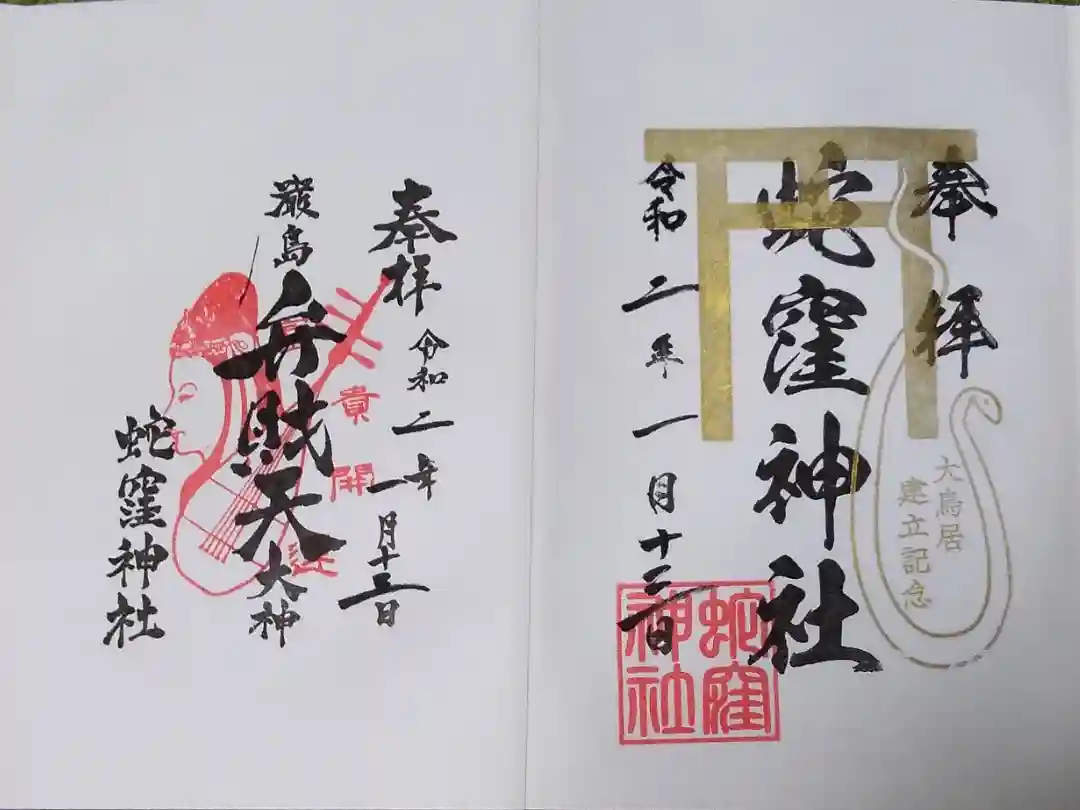 奉拝
蛇窪神社
令和二年一月十三日
大鳥居
建立記念
蛇窪
神社
奉拝 令和二年一月十三日
富貴開運
厳島弁財天大神
蛇窪神社